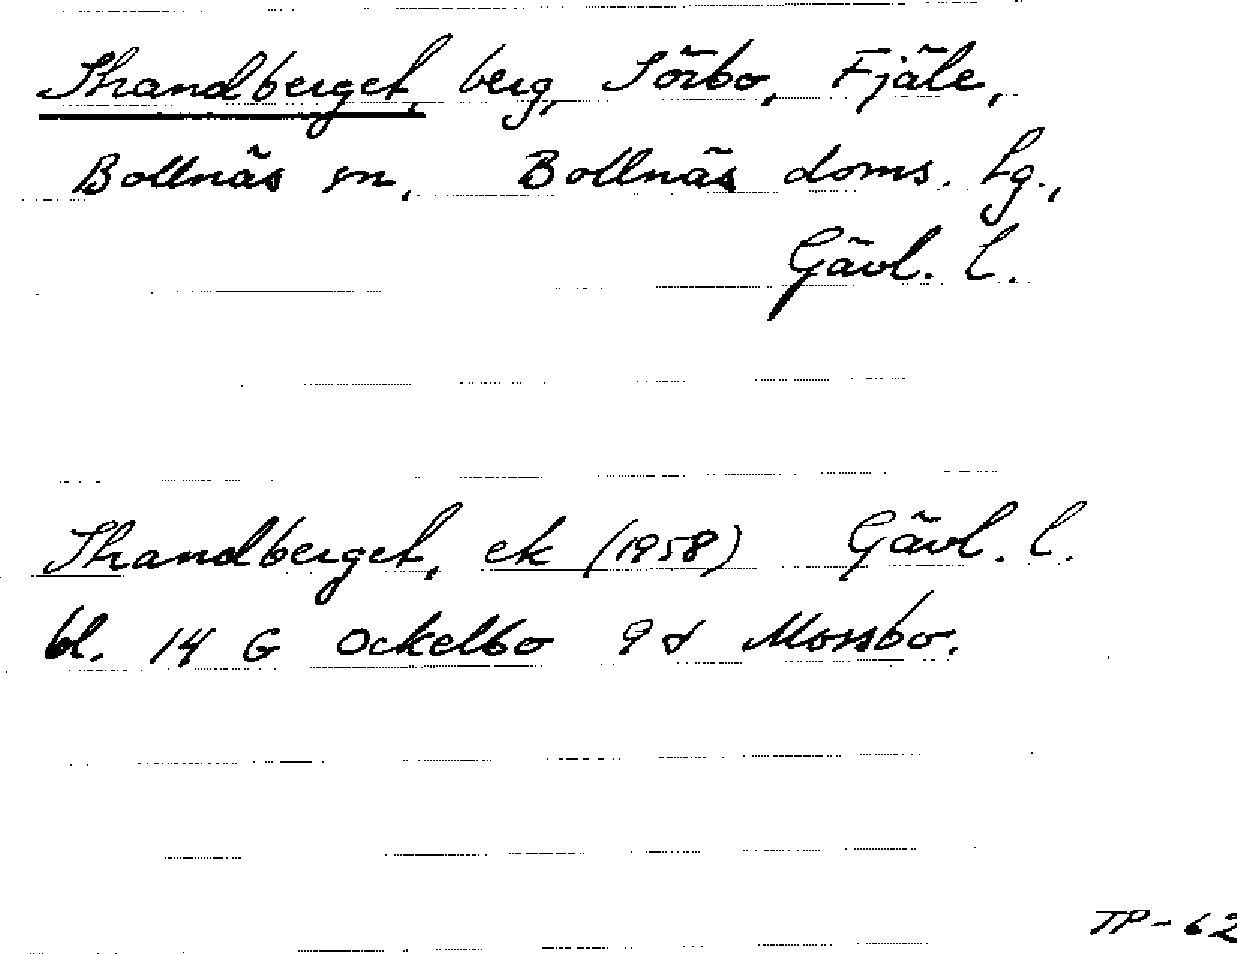 Strandberget, berg, Sörbo, Fjäle,
Bollnäs sn, Bollnäs doms. hg.,
Gävl. l.
Strandberget, ek (1958) Gävl. l.
bl. 14 G Ockelbo 9 d Mossbo.
TP-62